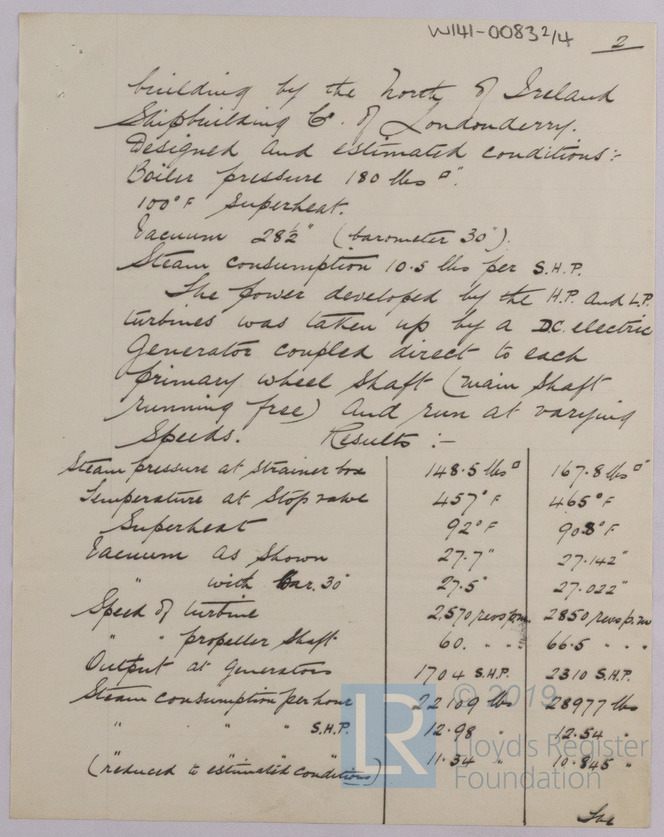 W141-0083 2/4
2
building by the North of Ireland
Shipbuilding Co. of Londonderry.
Designed and estimated conditions:-
Boiler pressure 180 lbs □".
100°F Superheat.
Vacuum 28½" (barometer 30").
Steam consumption 10.5 lbs per S.H.P.
The power developed by the H.P. and L.P.
turbines was taken up by a D.C. electric
generator coupled direct to each
primary wheel shaft (main shaft
running free) and run at varying
speeds. Results :-
Steam pressure at strainer box 148.5 lbs □" 167.8 lbs □"
Temperature at Stop valve 457°F 465°F
Superheat 92°F 90.8°F
Vacuum as shown 27.7" 27.142"
" with Bar. 30" 27.5" 27.022"
Speed of turbine 2,570 revs p.m. 2850 revs p.m
" " propeller shaft 60. " " " 66.5 " " "
Output at generators 1704 S.H.P. 2310 S.H.P.
Steam consumption per hour 22109 lbs 28977 lbs
" " " " S.H.P. 12.98 " 12.54 "
" " " " " 11.34 " 10.845 "
(reduced to estimated conditions)
The
LR © 2019
Lloyd's Register
Foundation